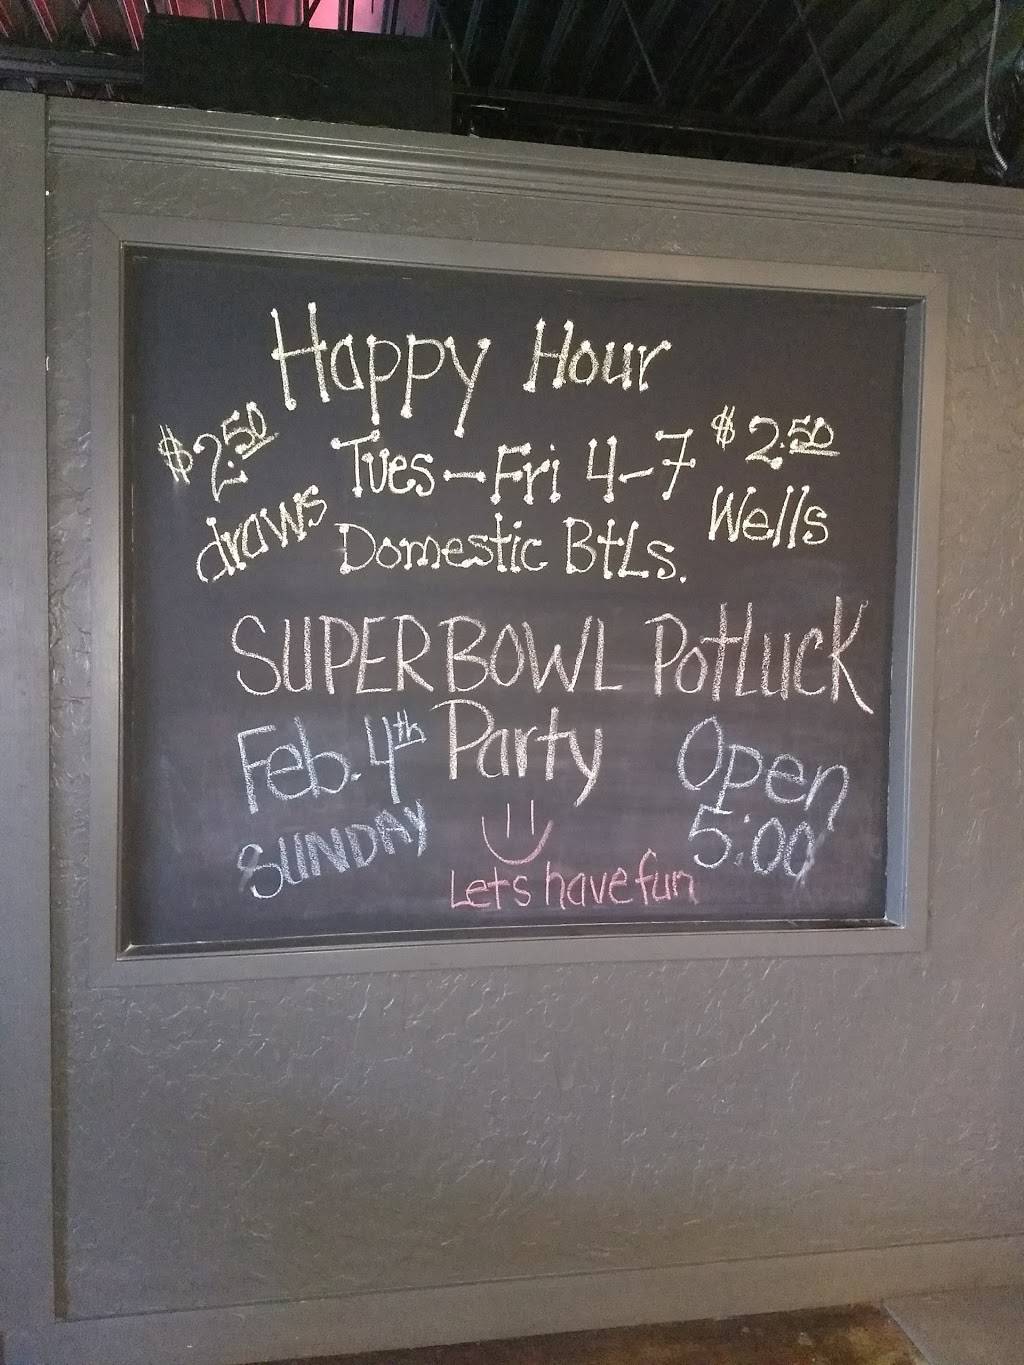 Happy Hour
$2.50 Tues-Fri 4-7 $2.50
draws Domestic BtLs. Wells
SUPERBOWL PotLucK
Feb. 4th Party Open
SUNDAY 5:00
Lets have fun